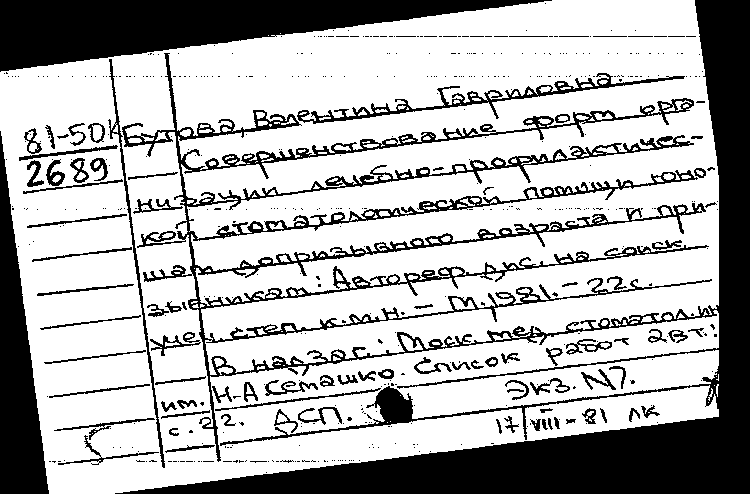 81-50К
2689
Бутова, Валентина Гавриловна.
Совершенствование форм орга-
низации лечебно-профилактичес-
кой стоматологической помощи юно-
шам допризывного возраста и при-
зывникам: Автореф. дис. на соиск.
учен. степ. к.м.н. – М. 1981. – 22 с.
В надзаг.: Моск. мед. стоматол. ин
им. Н.А Семашко. Список работ авт.:
с. 22. ДСП. Экз. N7.
17/VIII-81 ЛК